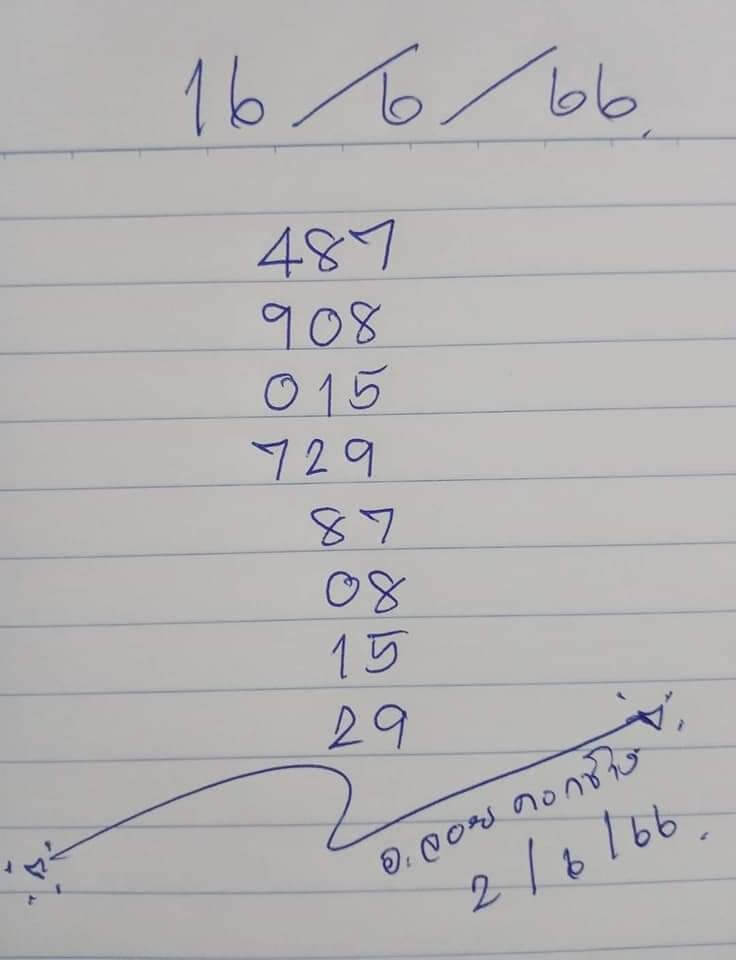 16/6/66.
487
908
015
729
87
08
15
29
อ.ลอย คอกช้าง
2/6/66.